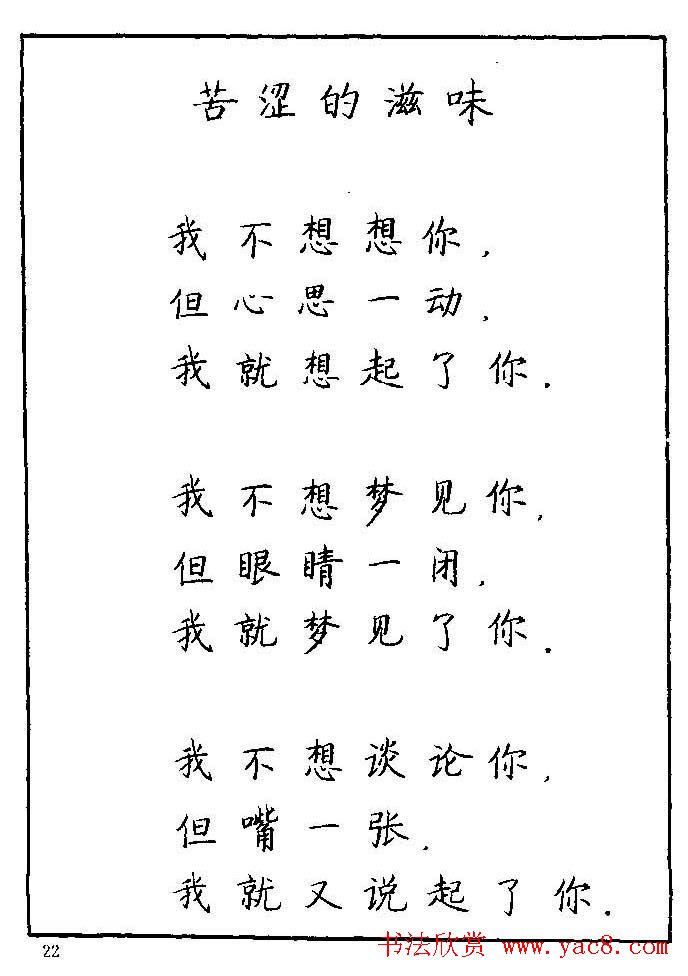 苦涩的滋味
我不想想你，
但心思一动，
我就想起了你．
我不想梦见你，
但眼睛一闭，
我就梦见了你．
我不想谈论你，
但嘴一张，
我就又说起了你．
22
书法欣赏www.yac8.com